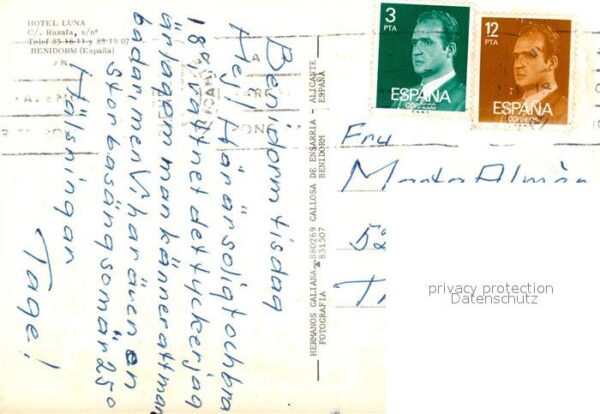 HOTEL LUNA
C/. Ruzafa, s/nº
Telef 85 18 11 y 85 19 07
BENIDORM (España)
Benidorm tisdag
Hej! Här är soligt och bra
18° i vattnet det tycker jag
är lagom man känner att man
badar men Vi har även en
stor basäng som är 25°
Hälsningar
Tage!
HERMANOS GALIANA - 880269 CALLOSA DE ENSARRIA - ALICANTE
FOTOGRAFIA 851507 BENIDORM ESPAÑA
3
PTA
ESPAÑA
CORREOS
12
PTA
ESPAÑA
CORREOS
Fru
Märta Almén
52
T
privacy protection
Datenschutz